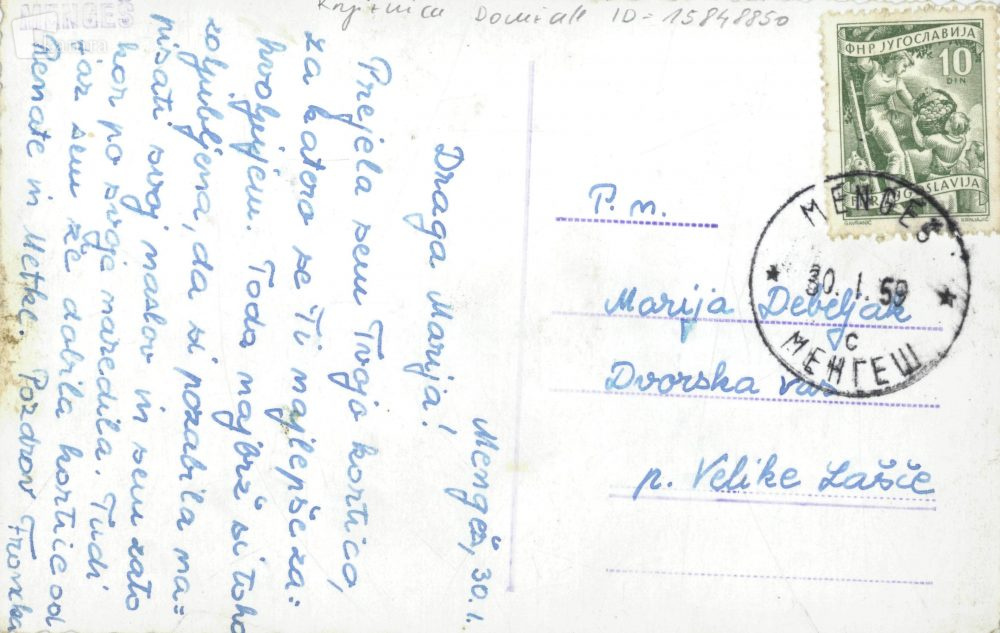 Knjižnica Domžale ID=15848850
MENGEŠ
Mengeš, 30. 1.
Draga Marija!
Prejela sem Tvojo kartico,
za katero se Ti najlepše za=
hvaljujem. Toda najbrž si tako
zaljubljena, da si pozabila na=
pisati svoj naslov in sem zato
kar po svoje naredila. Tudi
jaz sem že dobila kartico od
Renate in Metke. Pozdrav Francka
ФНР JУГОСЛАВИJА
10
DIN
FNR JUGOSLAVIJA
MENGEŠ
30. 1. 59
c
МЕНГЕШ
P. n.
Marija Debeljak
Dvorska vas
p. Velike Lašče